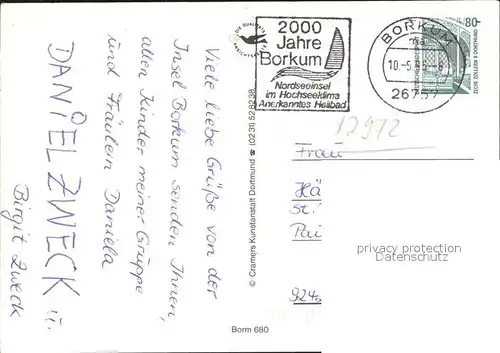 Viele liebe Grüße von der
Insel Borkum senden Ihnen,
allen Kinder meiner Gruppe
und Fräulein Daniela
DANIEL ZWECK !!
Birgit Zweck
2000
Jahre
Borkum
Nordseeinsel
im Hochseeklima
Anerkanntes Heilbad
BORKUM
10.-5.
26757
80
© Cramers Kunstanstalt Dortmund ☎ (0231) 528238
12972
Frau
Hä
St.
Pai
924
privacy protection
Datenschutz
Borm 680